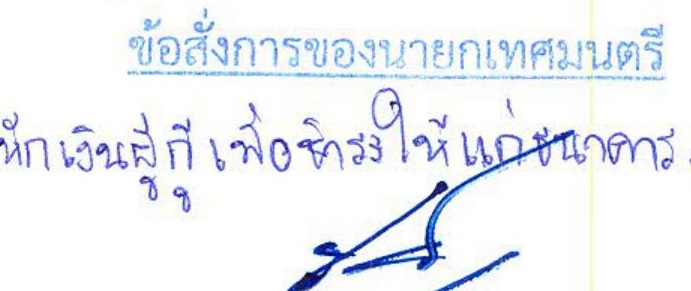 ข้อสั่งการของนายกเทศมนตรี
หักเงินผู้กู้ เพื่อชำระให้แก่ธนาคาร